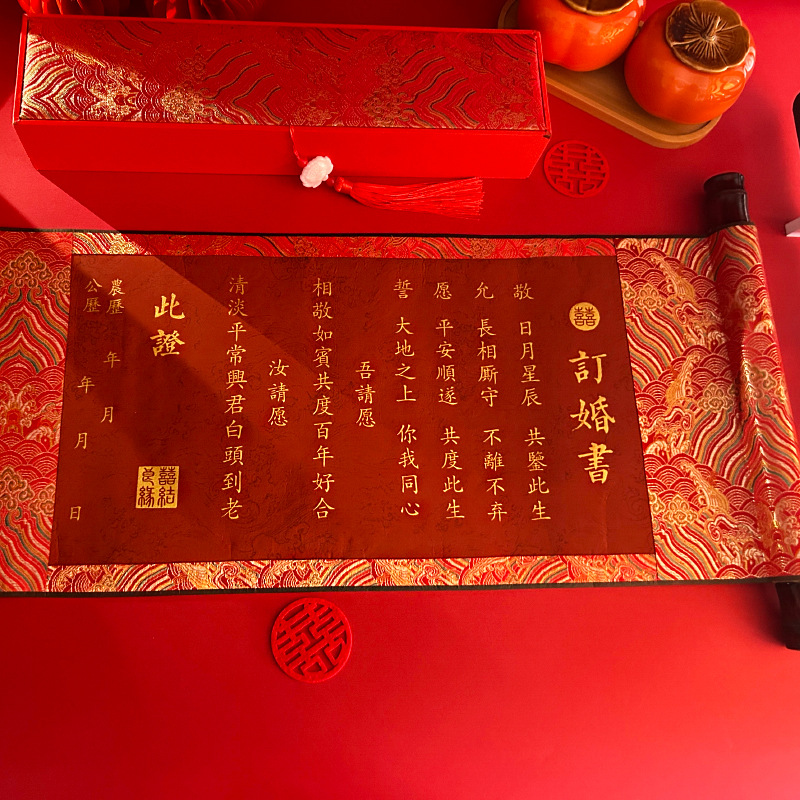 囍
訂婚書
敬 日月星辰 共鑒此生
允 長相厮守 不離不弃
愿 平安順遂 共度此生
誓 大地之上 你我同心
吾請愿
相敬如賓共度百年好合
汝請愿
清淡平常興君白頭到老
此證
囍結良緣
農歷 年 月
公歷 年 月 日